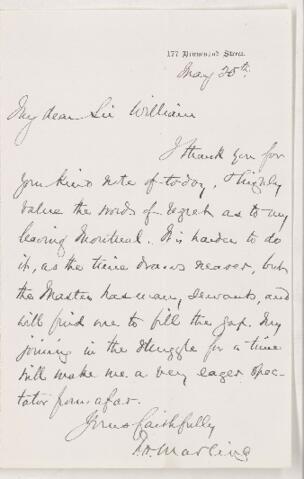 177 Drummond Street.
May 25th.
My dear Sir William
I thank you for
your kind note of today, I highly
value the words of regret as to my
leaving Montreal. It is harder to do
it, as the time draws nearer, but
the Master has many servants, and
will find one to fill the gap. My
joining in the struggle for a time
will make me a very eager spec-
tator from afar.
Yours faithfully
Marling